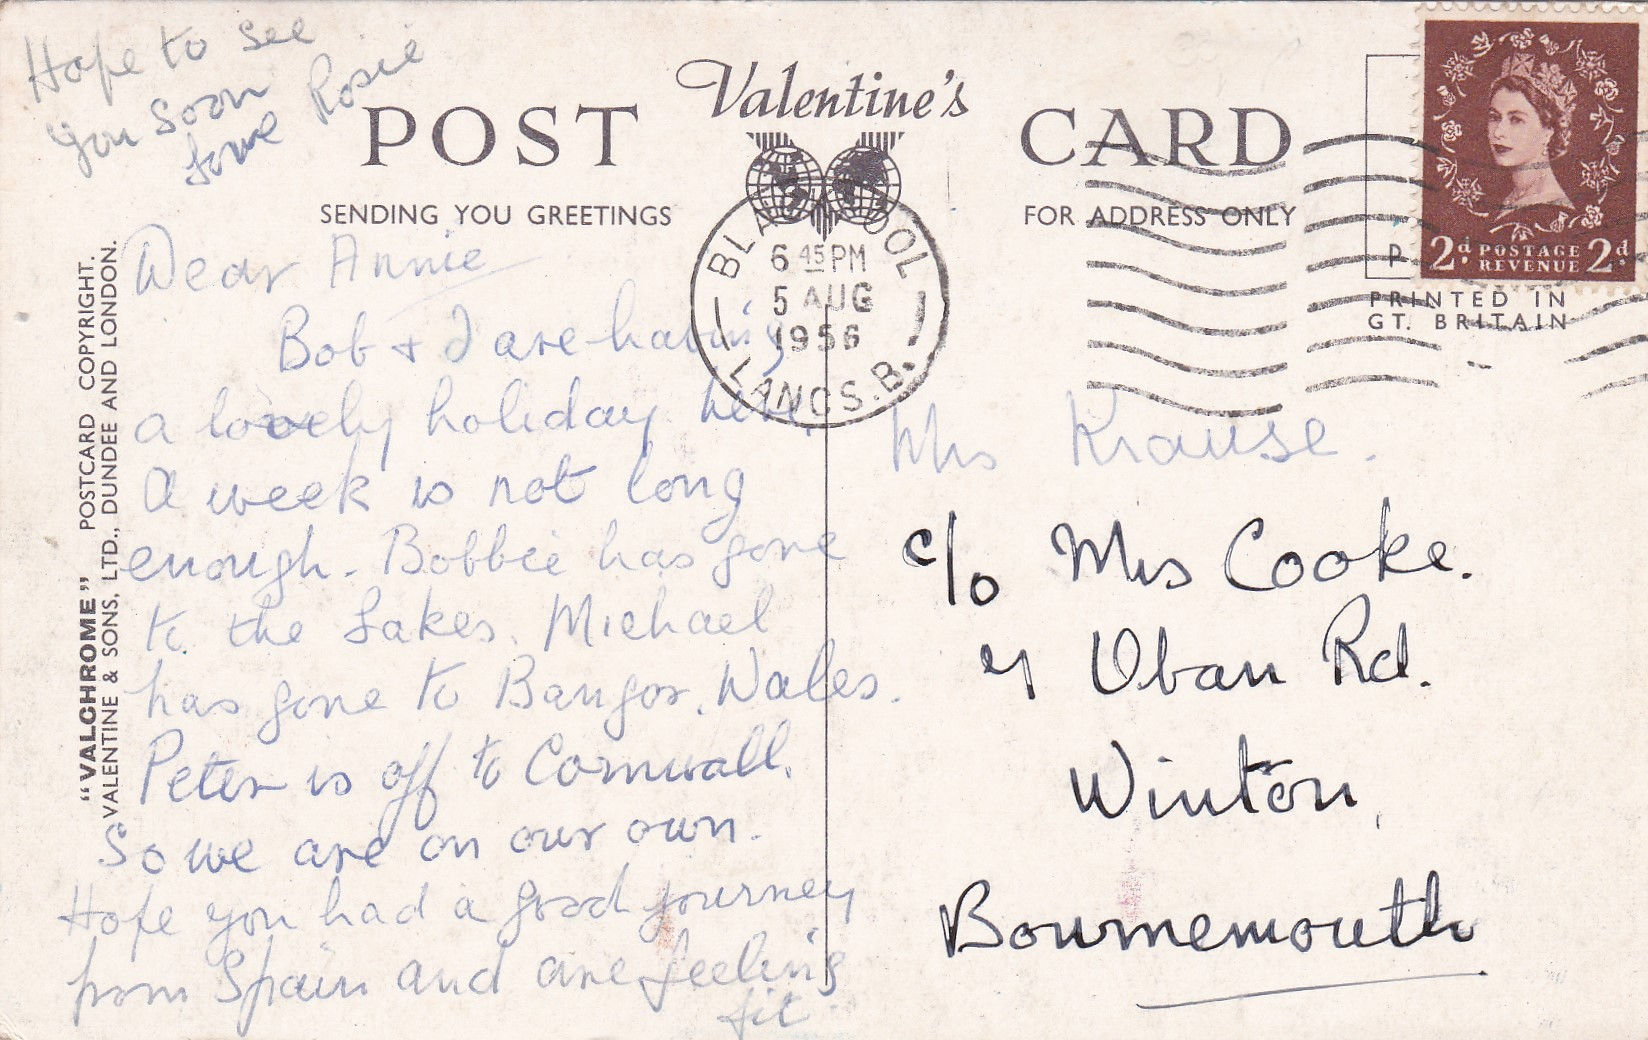 Hope to see
you soon
love Rosie
Valentine's
POST CARD
SENDING YOU GREETINGS
FOR ADDRESS ONLY
2d. POSTAGE REVENUE 2d.
P
PRINTED IN
GT. BRITAIN
BLACKPOOL
6 45 PM
5 AUG
1956
LANCS. B.
"VALCHROME" POSTCARD COPYRIGHT.
VALENTINE & SONS, LTD., DUNDEE AND LONDON.
Dear Annie
Bob + I are having
a lovely holiday here,
A week is not long
enough. Bobbie has gone
to the Lakes. Michael
has gone to Bangor, Wales.
Peter is off to Cornwall.
So we are on our own.
Hope you had a good journey
from Spain and are feeling
fit.
Mrs Krause.
c/o Mrs Cooke.
Oban Rd.
Winton,
Bournemouth